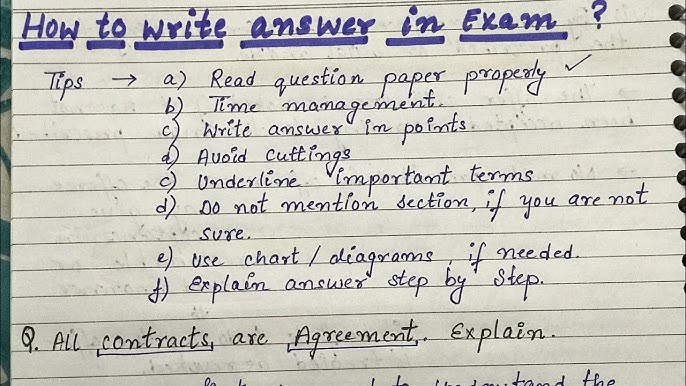 How to write answer in Exam ?
Tips → a) Read question paper properly ✓
b) Time management.
c) Write answer in points.
d) Avoid cuttings
c) Underline important terms
d) Do not mention section, if you are not
sure.
e) Use chart / diagrams, if needed.
f) Explain answer step by step.
Q. All contracts are Agreement. Explain.
understand the